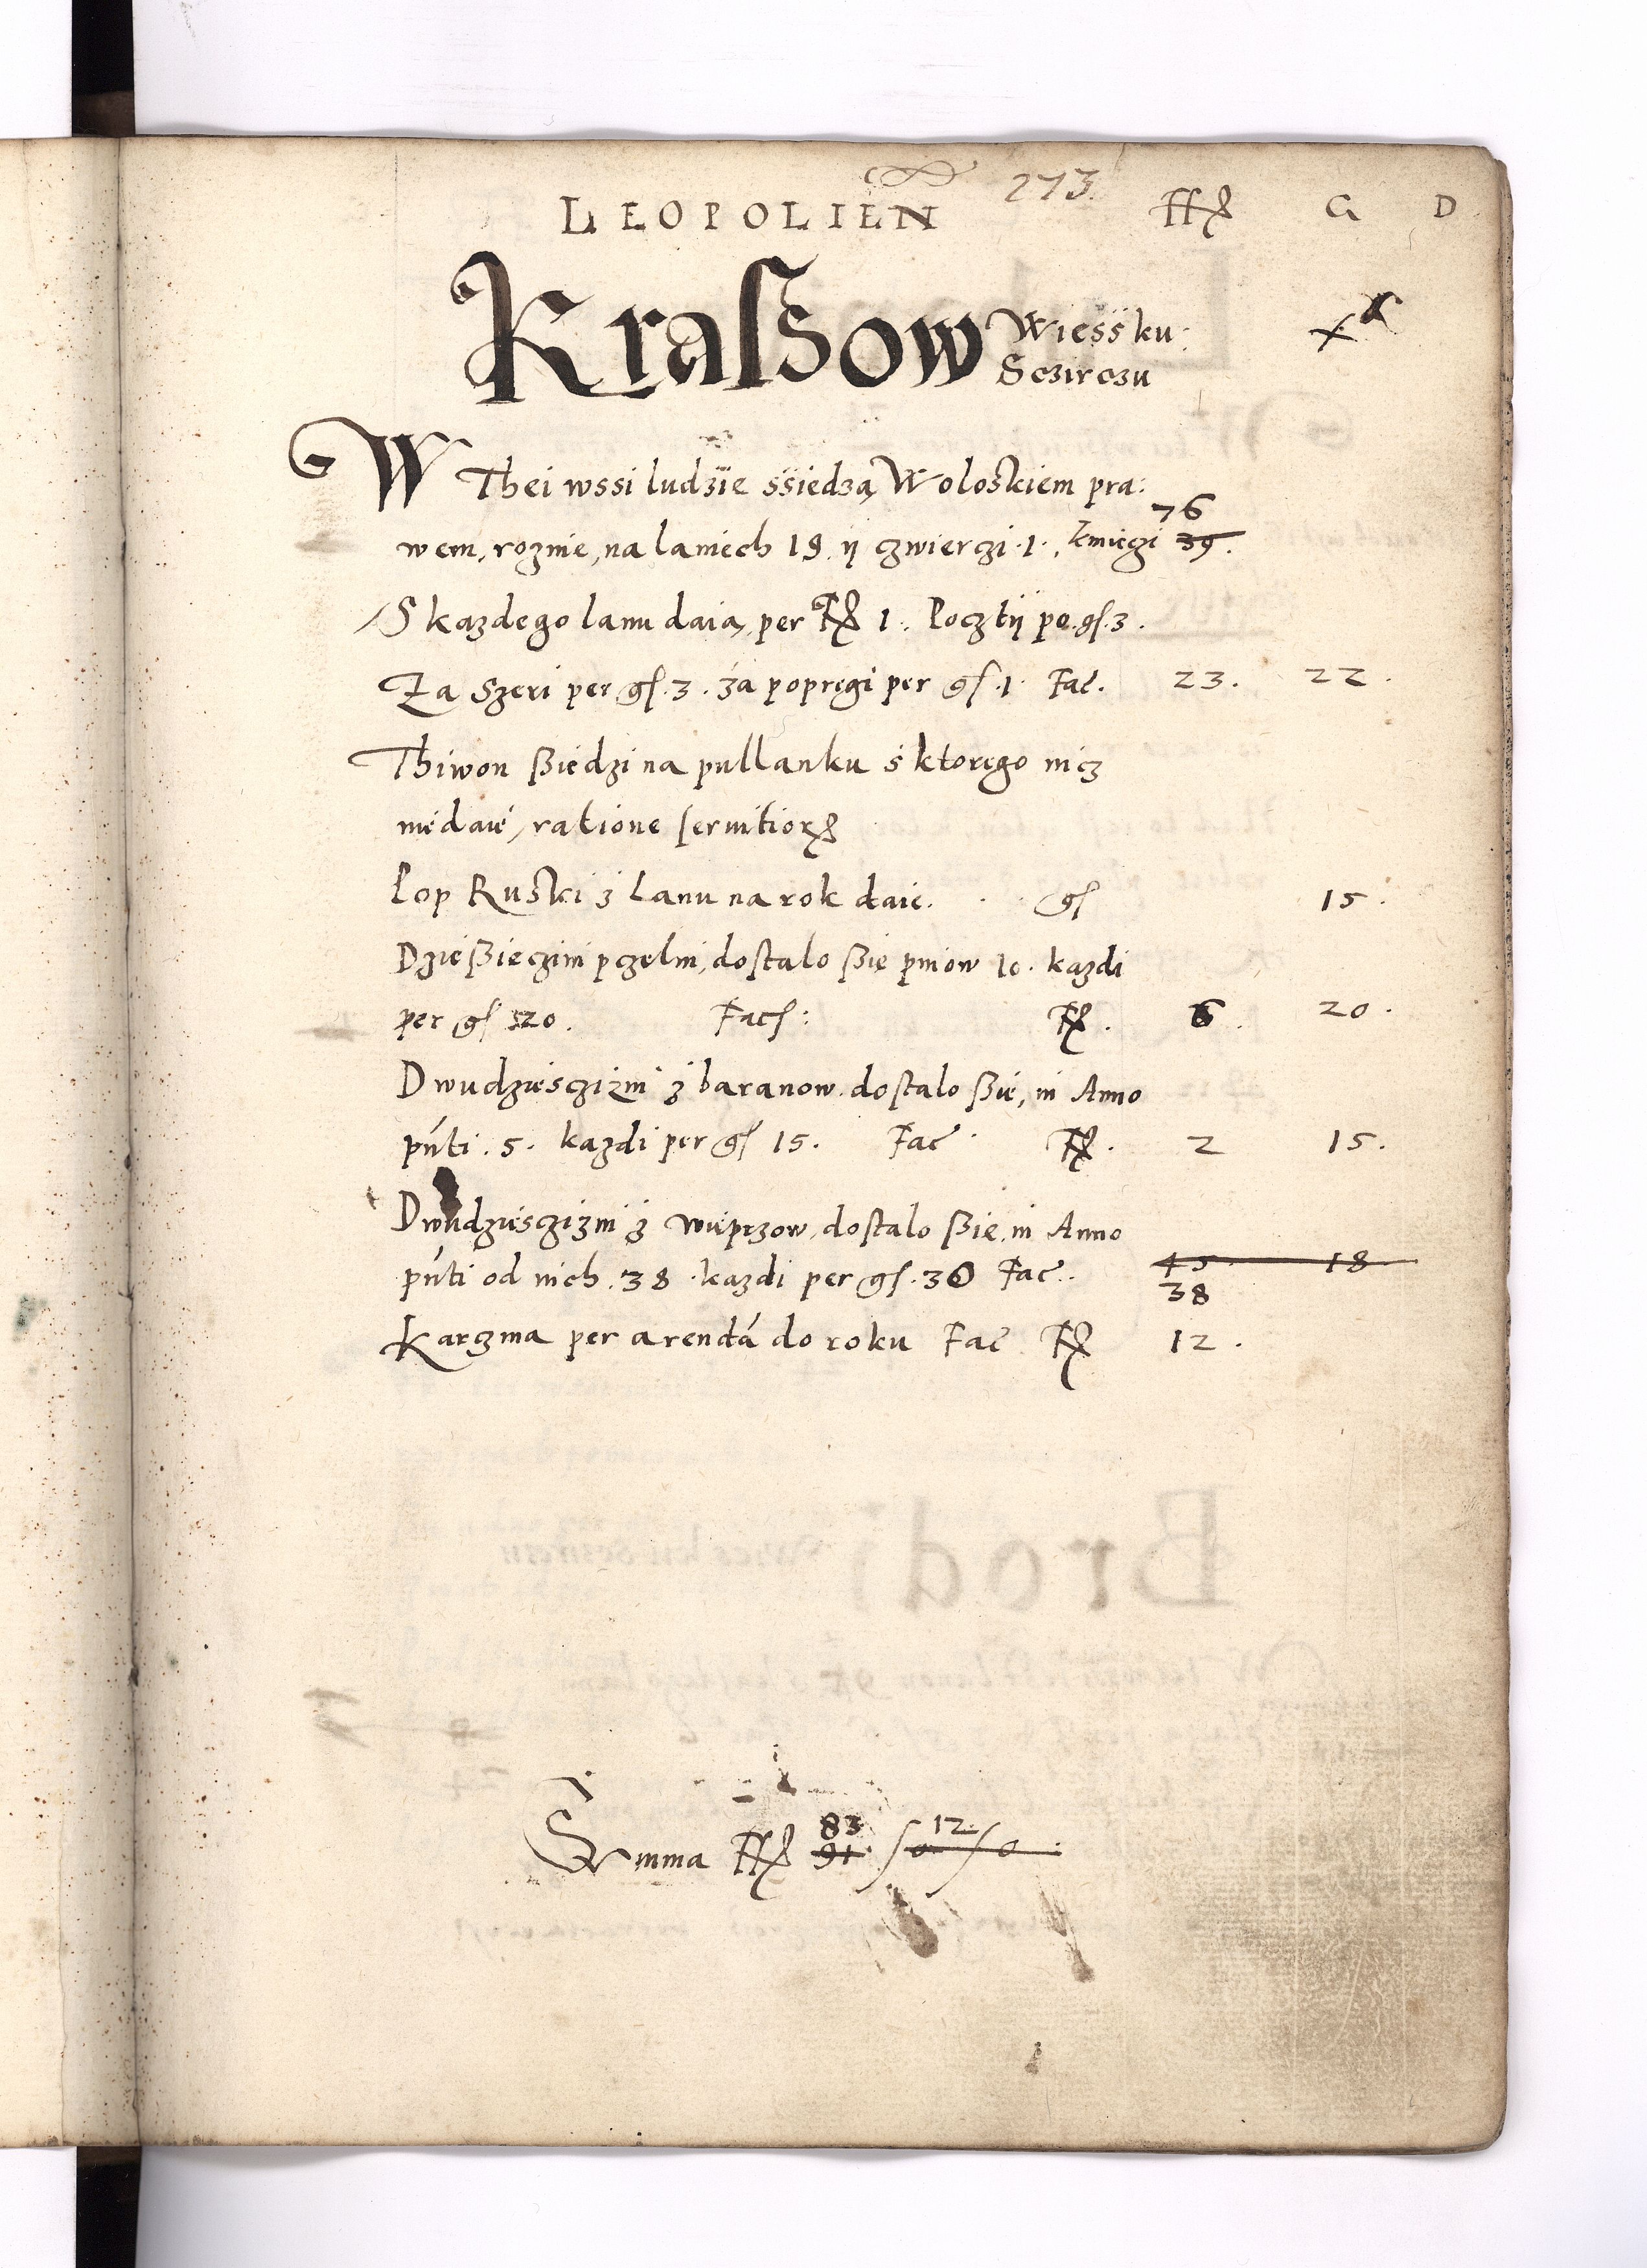 LEOPOLIEN 273. Fl G D
Krassow Wiess ku:
Sczirczu
W Thei wssi ludzie ssiedzą Woloskiem pra:
76
wem, roznie, na laniech 19 ij czwierczi .1. kmieczi 39.
S kazdego lanu daią, per Fl 1. Pocztij po gſ. 3.
Za Szeri per gſ. 3. za popręgi per gſ .1. Fac. 23. 22.
Thiwon ßiedzi na pullanku s ktorego nicz
niedaie, ratione seruitiorum
Pop Ruski z Lanu na rok daie. gſ 15.
Dzießieczini pczelni, dostalo ßie pniow 10. kazdi
per gſ 20. Facſ: Fl. 6. 20.
Dwudziesczizni z baranow dostalo ßie, in Anno
pńti .5. kazdi per gſ 15. Fac Fl. 2 15.
Dwudziesczizni z wieprzow, dostalo ßie, in Anno
pńti od nich .38. kazdi per gſ. 30 Fac. 45 18
38
Karczma per arendą do roku Fac Fl 12.
83 12.
Summa Fl 91 /0/0